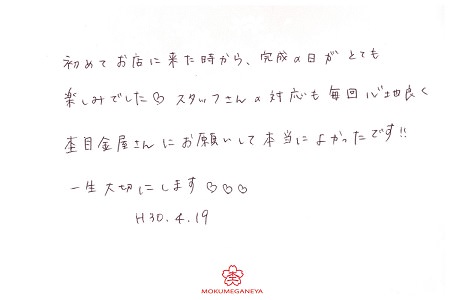 初めてお店に来た時から、完成の日がとても
楽しみでした♡ スタッフさんの対応も毎回心地良く
杢目金屋さんにお願いして本当によかったです!!
一生大切にします♡♡♡
H30.4.19
MOKUMEGANEYA